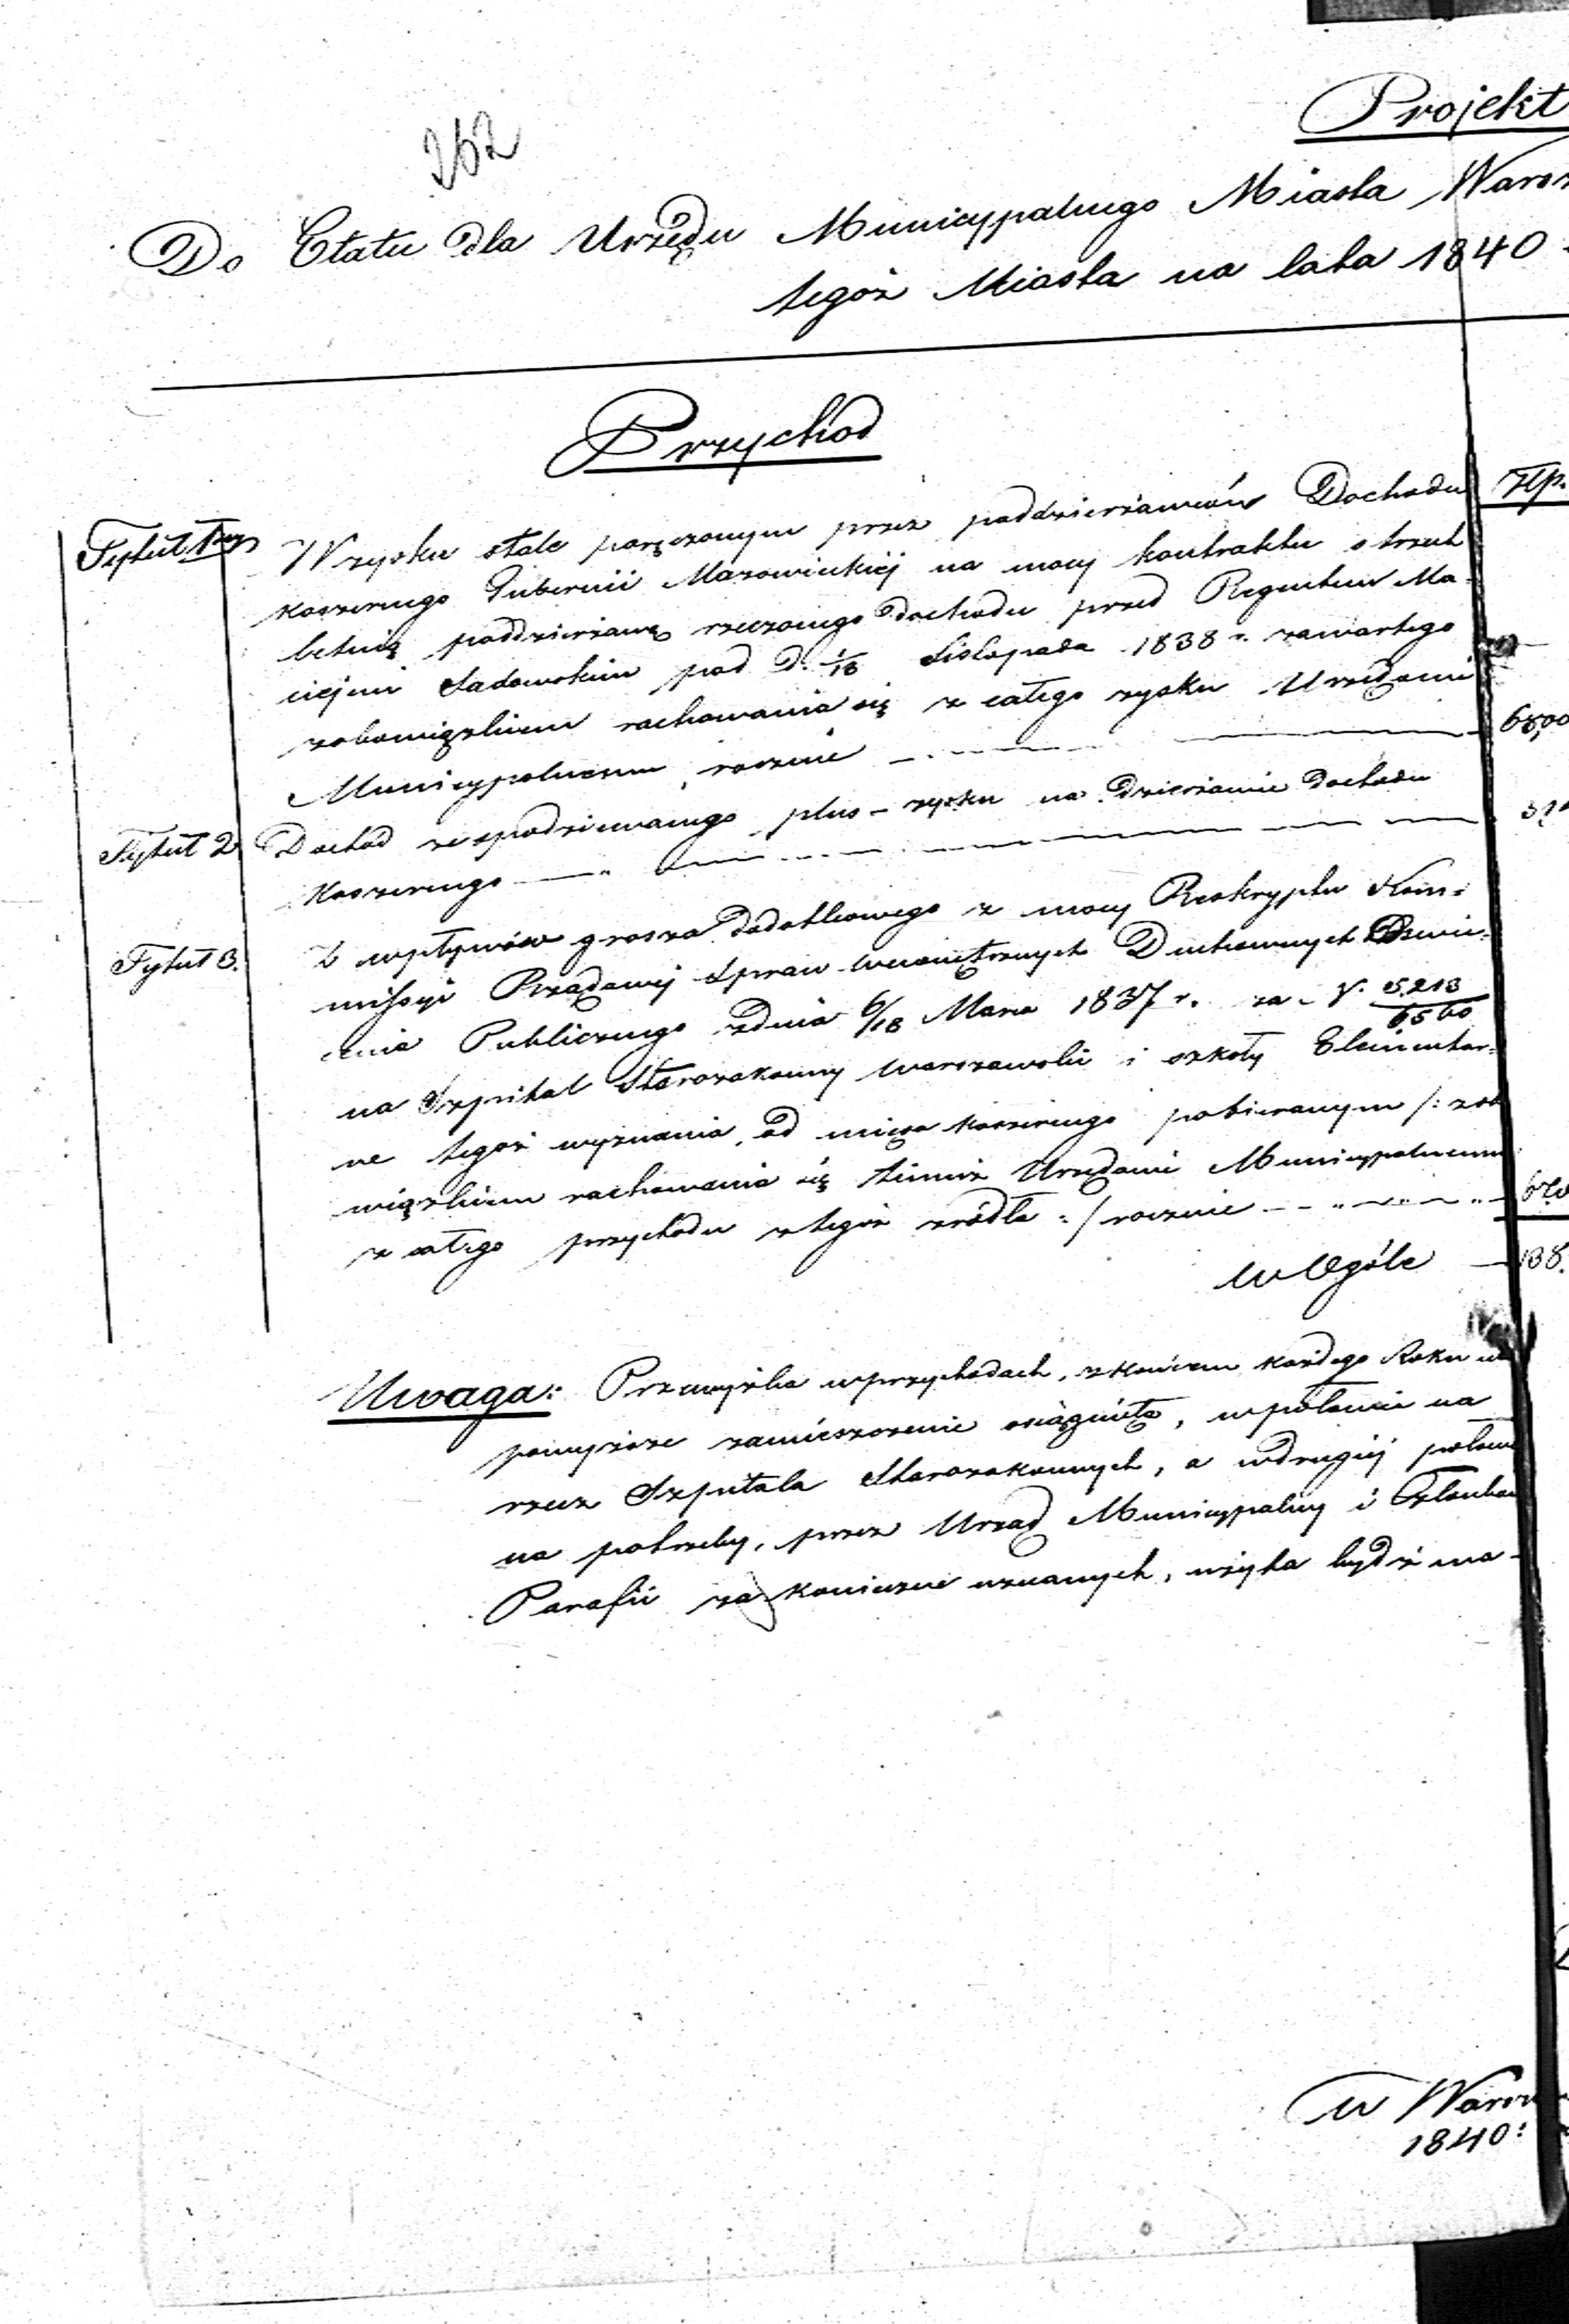 Projekt
262
Do Etatu dla Urzędu Municypalnego Miasta Warsz
tegoż Miasta na lata 1840
Przychod
Złp.
Tytuł 1szy
W zysku stale poręczonym przez poddzierżawców Dochodu
koszernego Gubernii Mazowieckiej na mocy kontraktu o trzech
letnią poddzierżawę rzeczonego dochodu przed Regentem Ma-
ciejem Sadowskim pod d. 1/13 Listopada 1838 r. zawartego
zobowiązkiem rachowania się z całego zysku Urzędowi
Municypalnemu, rocznie
Tytuł 2
Dochód ze spodziewanego plus-zysku na dzierżawie dochodu
Koszernego
Tytuł 3.
Z wpływów grosza dodatkowego z mocy Reskryptu Kom-
missyi Rządowej Spraw Wewnętrznych Duchownych i Oświe-
cenia Publicznego z dnia 6/18 Marca 1837 r. za N. 5,213/6560
na Szpital Starozakonny Warszawski i szkoły Elementar-
ne tegoż wyznania, od mięsa koszernego pobieranym /: zobo
wiązkiem rachowania się temuż Urzędowi Municypalnemu
z całego przychodu z tegoż źródła :/ rocznie
W Ogóle 138.
Uwaga: Przewyżka w przychodach, z końcem każdego Roku
powyższe zamieszczenie osiągnięta, w połowie na
rzecz Szpitala Starozakonnych, a w drugiej połowie
na potrzeby, przez Urząd Municypalny i Członków
Parafii za konieczne uznanych, użyta bydź ma
w Warsz
1840: